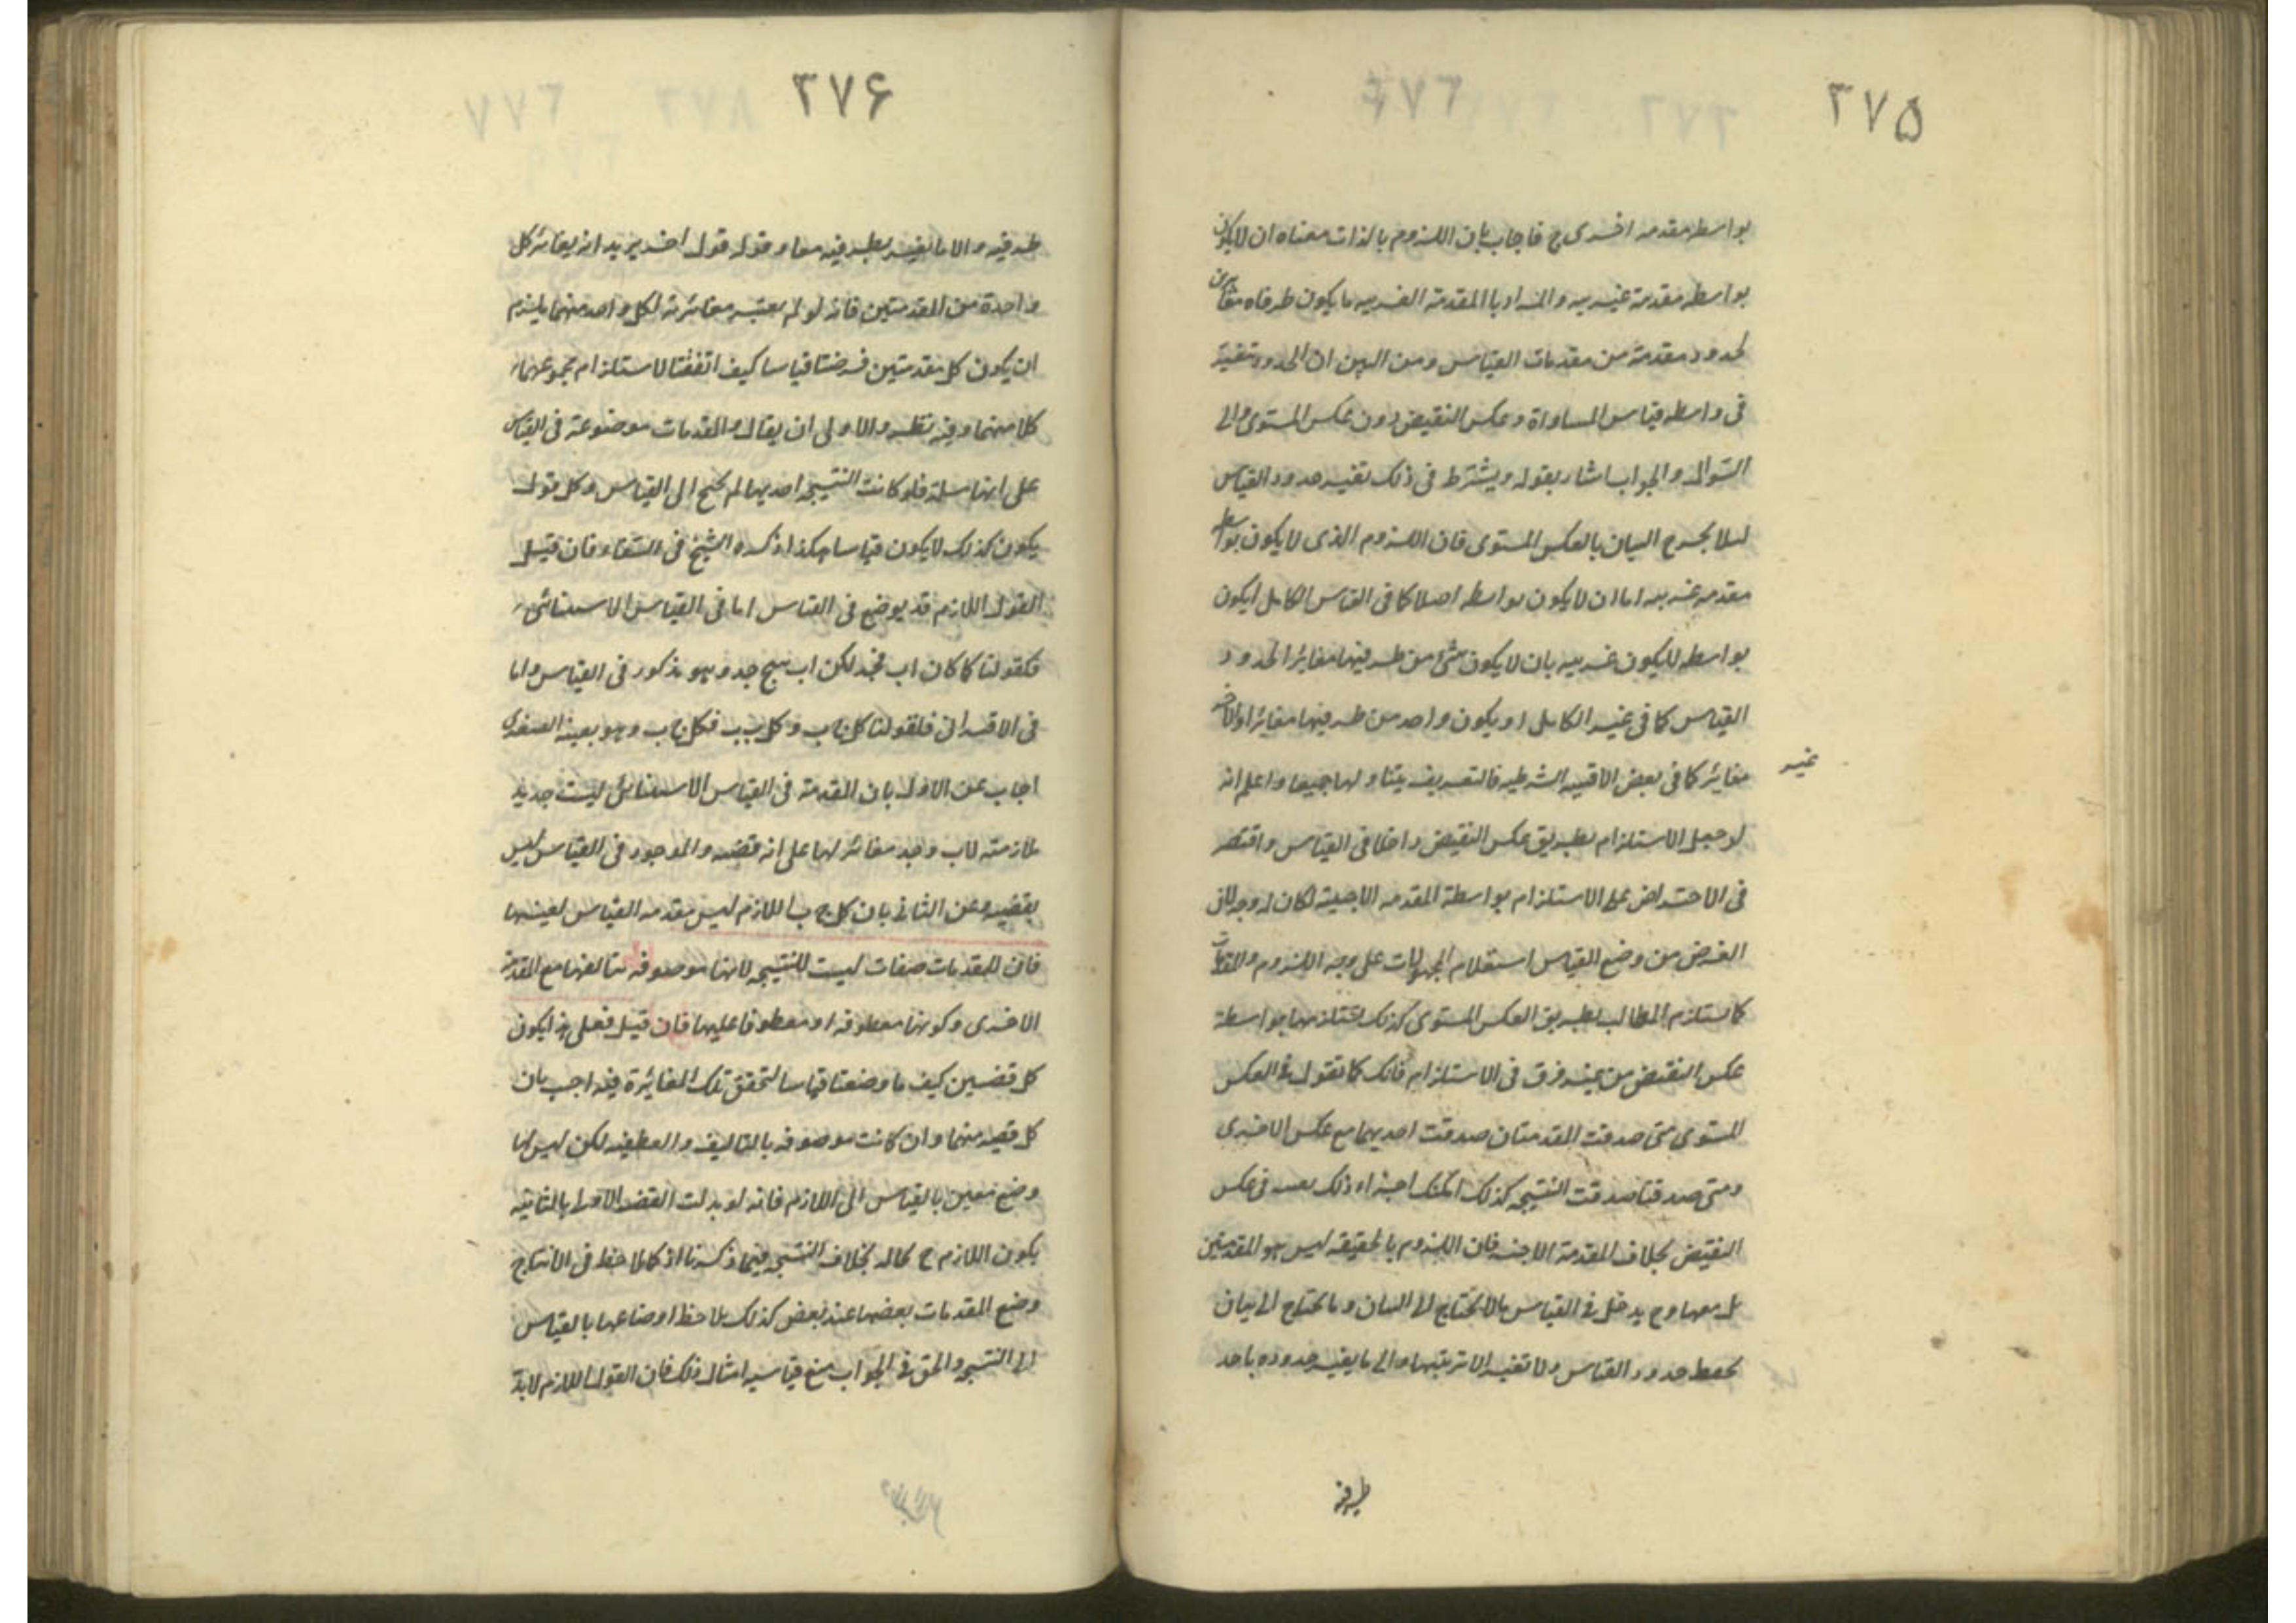 ٣٧٥
بواسطه مقدمه اخرى ح فاجاب بان اللزوم بالذات معناه ان لايكون
بواسطه مقدمة غريبه والمراد باالمقدمة الغريبه مايكون طرفاه مغايرين
لحدود مقدمة من مقدمات القياس ومن البين ان الحدود متغيرة
فى واسطه قياس المساواة وعكس النقيض دون عكس المستوى والى
السؤال والجواب اشار بقوله ويشترط فى ذلك تغيير حدود القياس
لئلا يخرج البيان بالعكس المستوى فان اللزوم الذى لايكون بواسطه
مقدمه غريبه اما ان لايكون بواسطه اصلا كما فى القياس الكامل ايكون
بواسطه لايكون غريبه بان لايكون شئ من طرفيها مغايرا لحدود
القياس كما فى غير الكامل او يكون واحد من طرفيها مغايرا والاخر
غير
مغاير كما فى بعض الاقيسه الشرطيه فالتعريف يتناولها جميعا واعلم انه
لوجعل الاستلزام بطريق عكس النقيض داخلا فى القياس واقتصر
فى الاحتراض على الاستلزام بواسطة المقدمه الاجنبية لكان له وجه لان
الغرض من وضع القياس استعلام المجهولات على وجه اللزوم والمقدمات
كما تستلزم المطالب بطريق العكس المستوى كذلك تستلزمها بواسطة
عكس النقيض من غير فرق فى الاستلزام فانك كما تقول فى العكس
المستوى متى صدقت المقدمتان صدقت احديهما مع عكس الاخرى
ومتى صدقتا صدقت النتيجه كذلك امكنك اجراء ذلك بعينه فى عكس
النقيض بخلاف المقدمة الاجنبيه فان اللزوم بالحقيقه ليس هو المقدمتين
بل معها وح يدخل فى القياس مالايحتاج الى البيان وما يحتاج الى بيان
بحفظ حدود القياس ولا تغير الا ترتيبها والى مايغير حدوده باحد
طرفيه
٣٧۶
طرفيه والا مايغير بطرفيه معا وقوله قول اخر يريد انه يغاير كل
واحدة من المقدمتين فانه لو لم يعتبر مغايرته لكل واحد منهما يلزم
ان يكون كل مقدمتين فرضتا قياسا كيف اتفقتا لاستلزام مجموعهما
كلا منهما وفيه نظر والاولى ان يقال المقدمات موضوعة فى القياس
على انها مسلمة فلو كانت النتيجه احديها لم يحتج الى القياس وكل قول
يكون كذلك لايكون قياسا هكذا ذكره الشيخ فى الشفاء فان قيل
القول اللازم قد يوضع فى القياس اما فى القياس الاستثنائى
فكقولنا كلما كان اب فجد لكن اب ينتج جد وهو مذكور فى القياس واما
فى الاقترانى فلقولنا كل ج ب وكل ب ب فكل ج ب وهو بعينه الصغرى
اجاب عن الاول بان المقدمة فى القياس الاستثنائى ليست جد بل
ملازمته لاب وجد مغائر لها على انه قضيه والموجود فى القياس ليس
بقضيه وعن الثانى بان كل ج ب اللازم ليس مقدمه القياس بعينها
فان للمقدمات صفات ليست للنتيجه لانها موصوفه بتاليفها مع المقدمة
الاخرى وكونها معطوفه او معطوفا عليها فان قيل فعلى هذا يكون
كل قضيتين كيف ما وضعتا قياسا لتحقق تلك المغايرة فيه اجيب بان
كل قضيه منهما وان كانت موصوفه بالتاليف والعطفيه لكن ليس لها
وضع معين بالقياس الى اللازم فانه لو بدلت القضيه الاولى بالثانيه
يكون اللازم ح بحاله بخلاف النتيجه فيما ذكرنا اذ كما يلاحظ فى الانتاج
وضع المقدمات بعضها عند بعض كذلك يلاحظ اوضاعها بالقياس
الى النتيجه والحق فى الجواب منع قياسيه امثال ذلك فان القول اللازم لابد